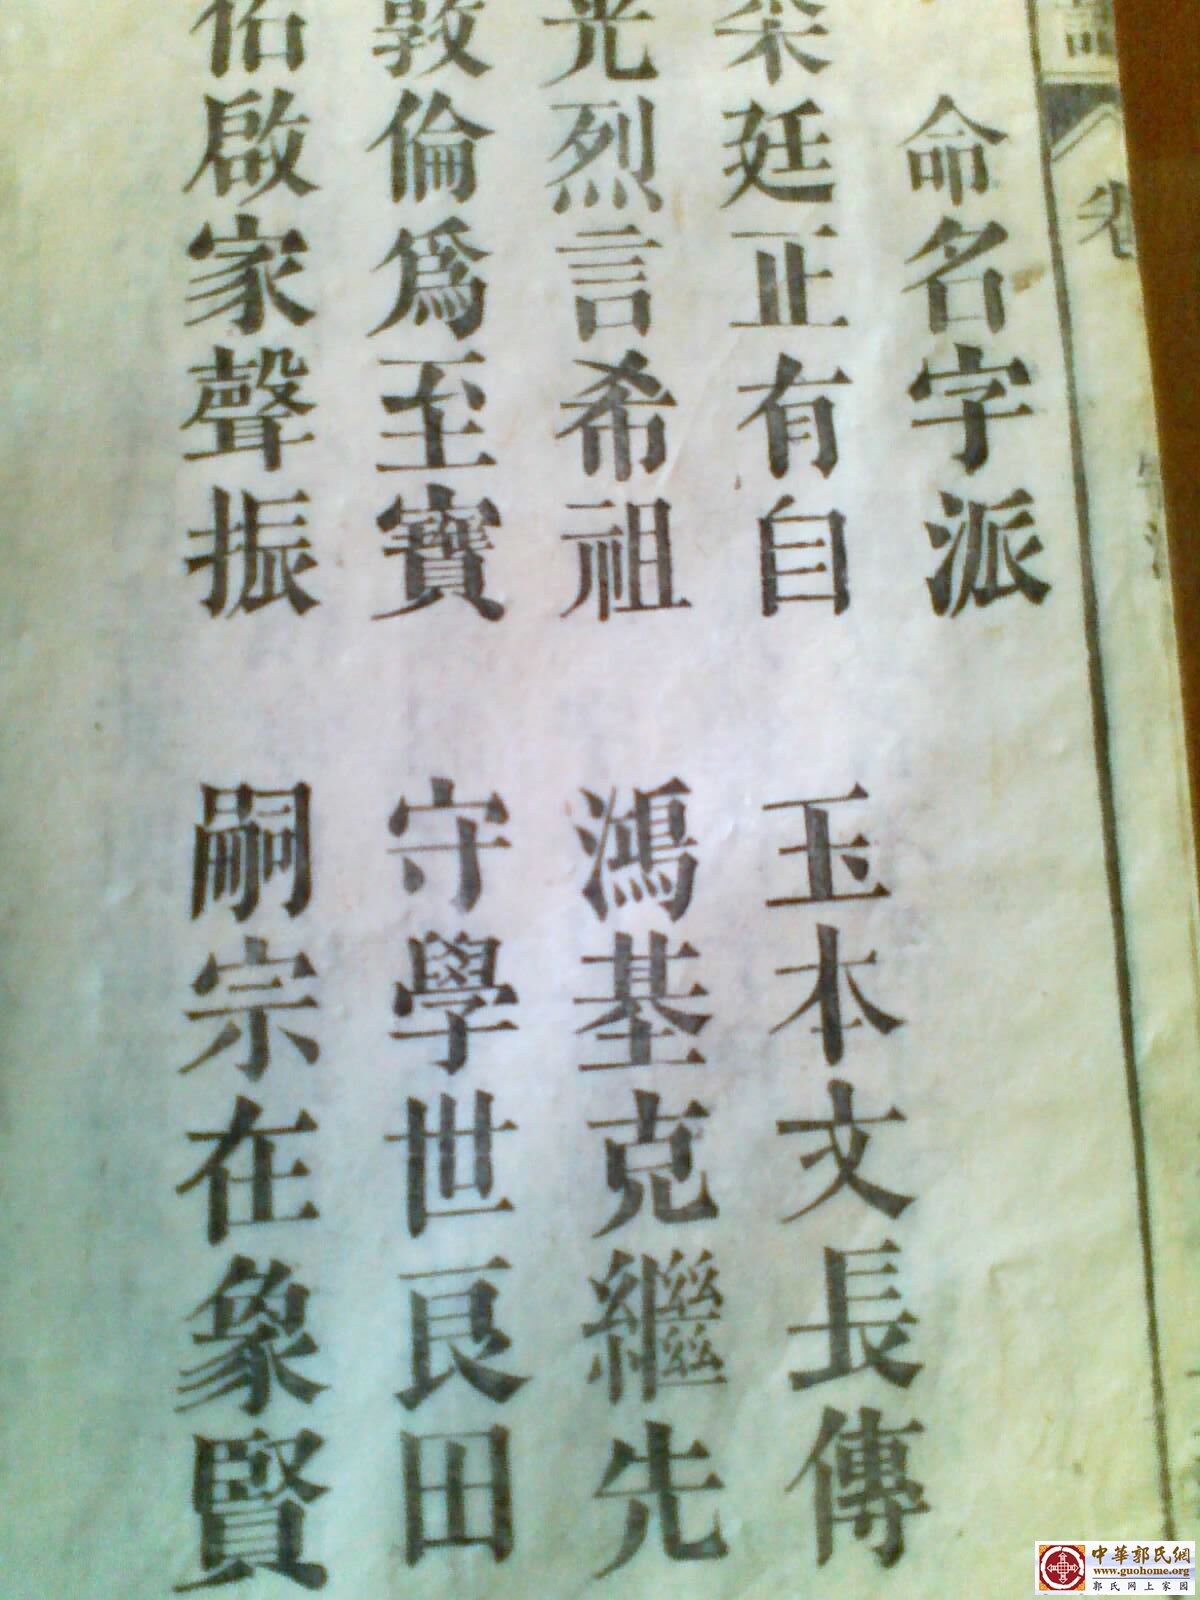 卷
命名字派
廷正有自 玉本文長傳
光烈言希祖 鴻基克繼先
敦倫爲至寶 守學世良田
佑啟家聲振 嗣宗在象賢
中華郭氏網
www.guohome.org
郭氏网上家园